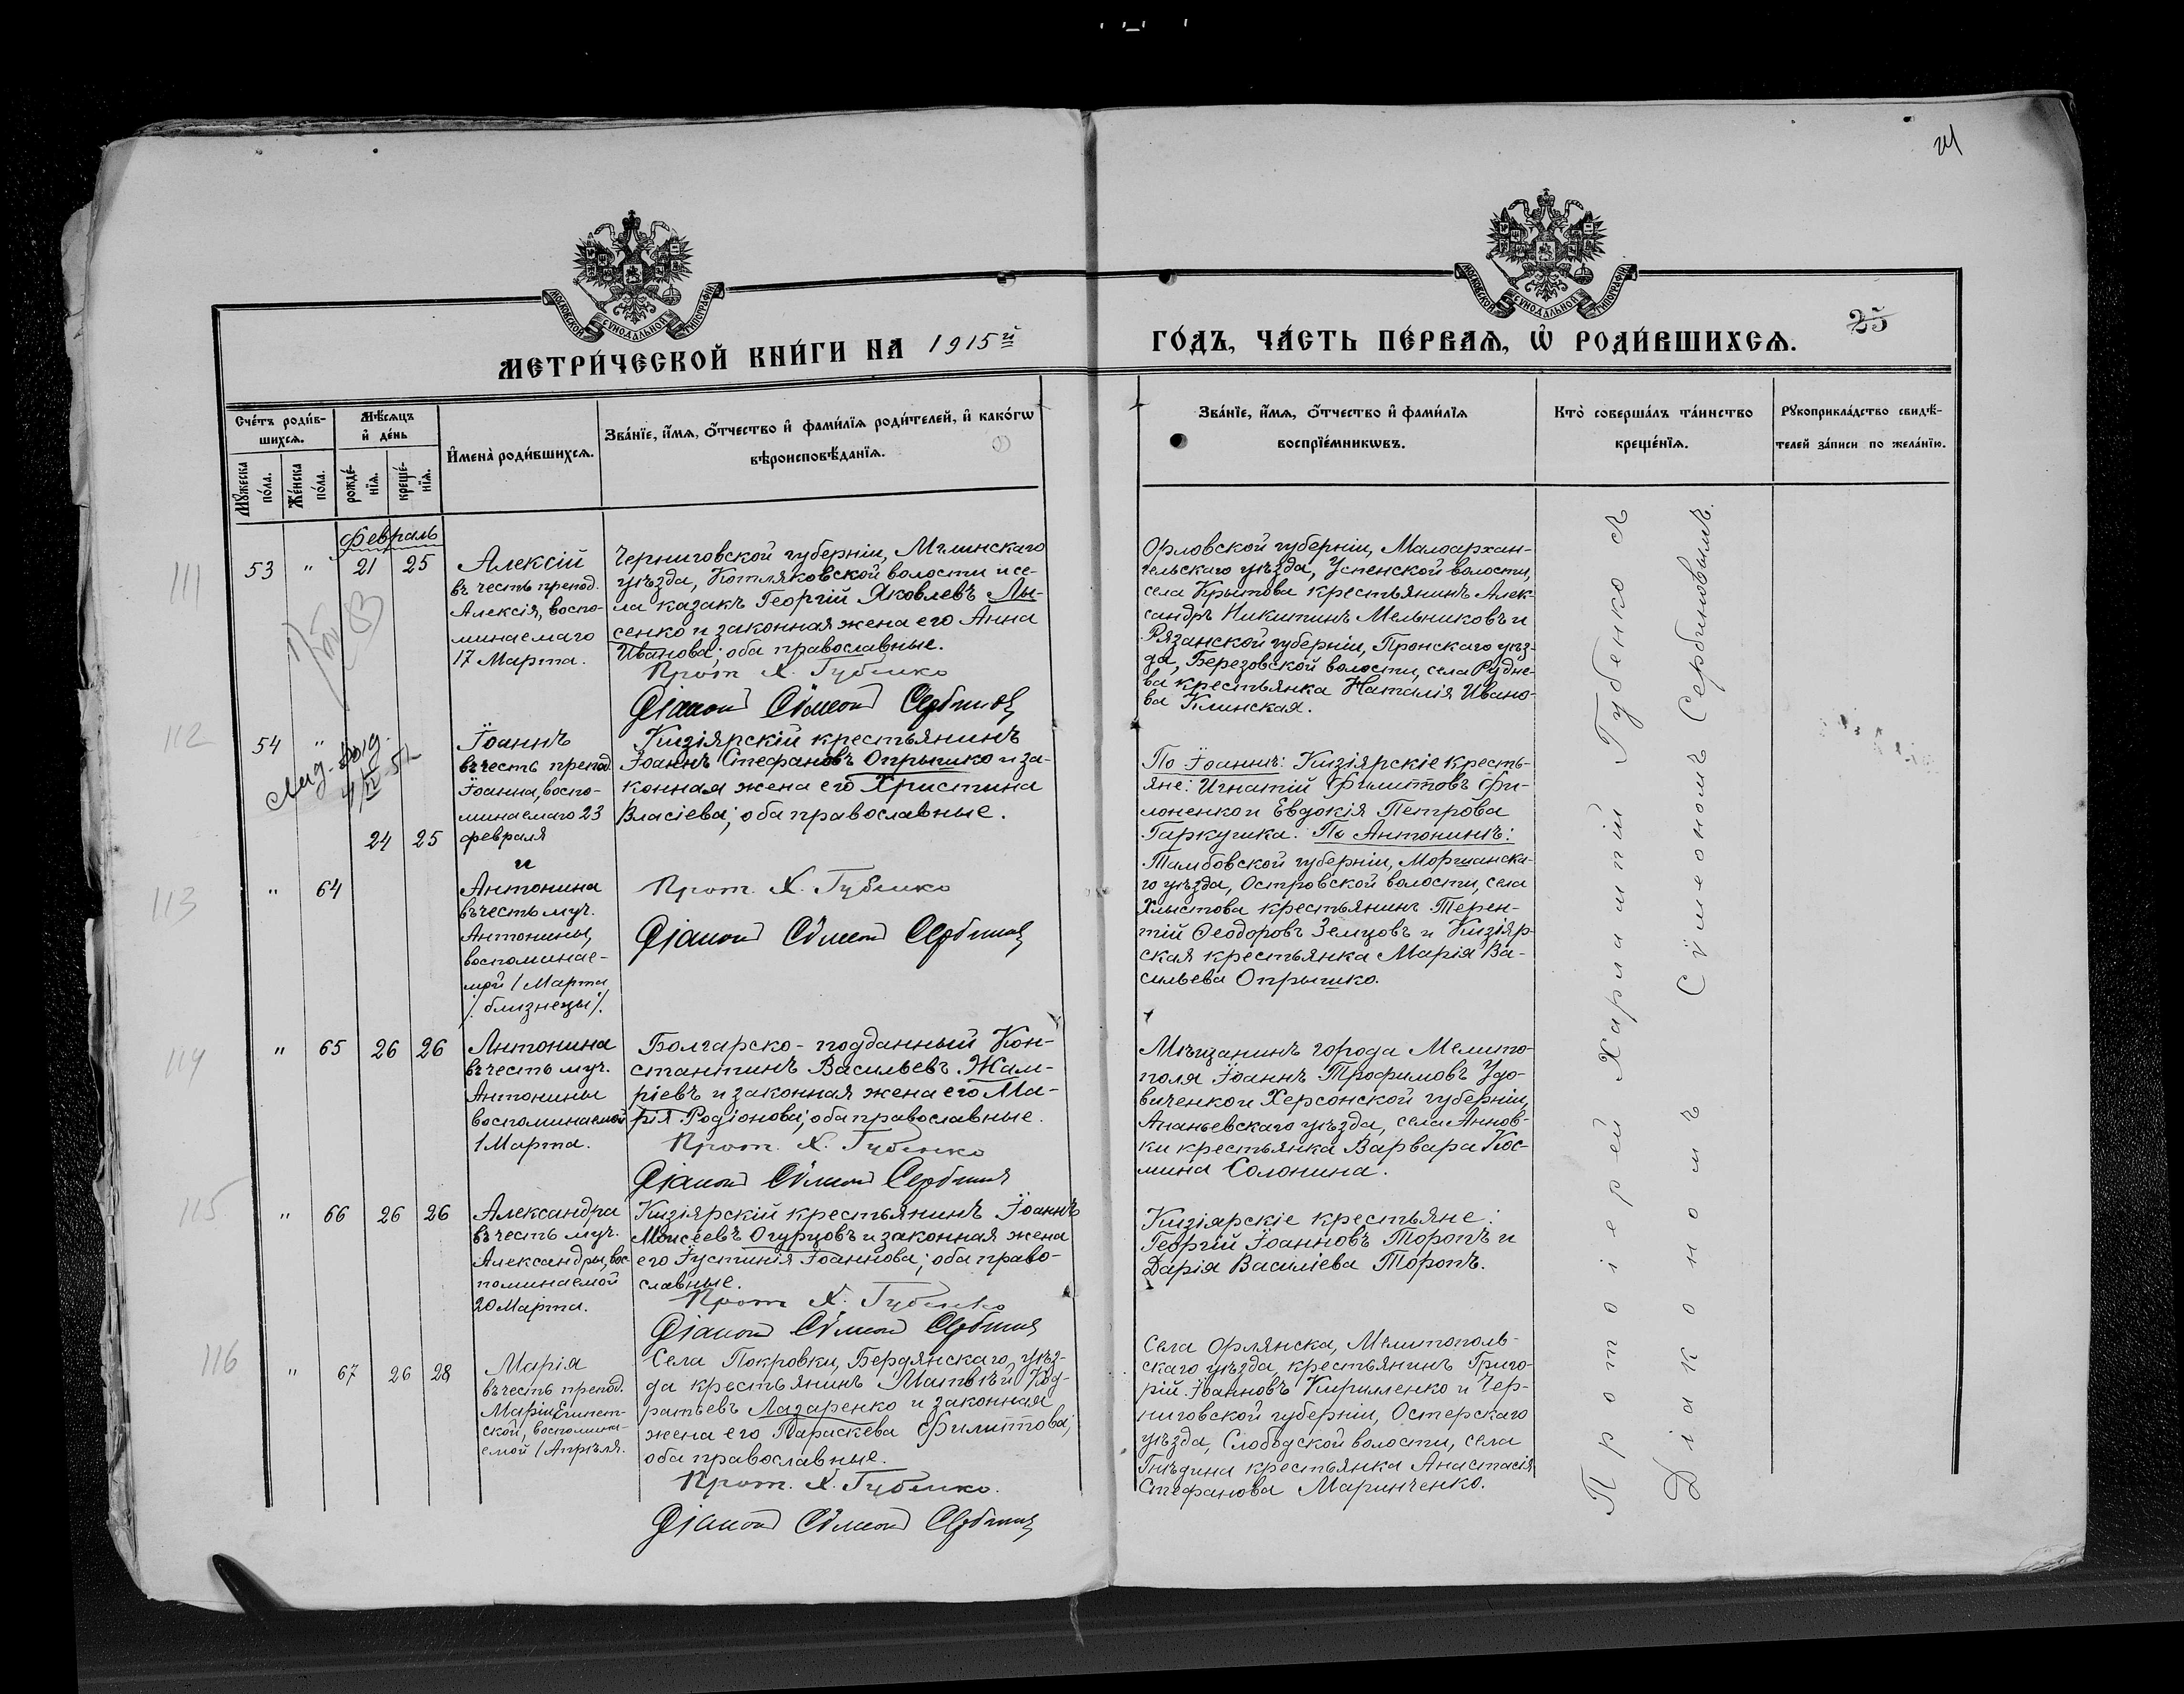 24
МОСКОВСКОЙ СѴНОДАЛЬНОЙ ТИПОГРАФІИ
МОСКОВСКОЙ СѴНОДАЛЬНОЙ ТИПОГРАФІИ
МЕТРИ́ЧЕСКОЙ КНИ́ГИ НА 1915й
ГО́ДЪ, ЧА́СТЬ ПЕ́РВАѦ, Ѡ҆ РОДИ́ВШИХСѦ.
25
Сче́тъ роди́в-
шихсѧ.
Мѣ́сѧцъ
и҆ де́нь
Мꙋ́жеска
по́ла.
Же́нска
по́ла.
рожде́-
нїѧ.
креще́-
нїѧ.
И҆мена̀ роди́вшихсѧ.
Зва́нїе, и҆́мѧ, ѻ҆́тчество и҆ фами́лїѧ роди́телей, и҆ како́гѡ
вѣроисповѣ́данїѧ.
Зва́нїе, и҆́мѧ, ѻ҆́тчество и҆ фами́лїѧ
воспрїе́мникѡвъ.
Кто̀ соверша́лъ та́инство
креще́нїѧ.
Рꙋкоприкла́дство свидѣ́-
телей за́писи по жела́нїю.
Февраль
111
53 " 21 25
Алексій
въ честь препод.
Алексія, воспо-
минаемаго
17 Марта.
Черниговской губерніи, Мглинскаго
уѣзда, Котляковской волости и се-
ла казакъ Георгій Яковлевъ Лы-
сенко и законная жена его Анна
Иванова; оба православные.
Прот. Х. Губенко
Діаконъ Сѵмеонъ Сербиновъ
Орловской губерніи, Малоархан-
гельскаго уѣзда, Успенской волости,
села Крытова крестьянинъ Алек-
сандръ Никитинъ Мельниковъ и
Рязанской губерніи, Пронскаго уѣз-
да, Березовской волости, села Рудне-
ва крестьянка Наталія Ивано-
ва Климская.
112
54 "
выд.
4/IV-51
24 25
Іоаннъ
въ честь препод.
Іоанна, воспо-
минаемаго 23
февраля
и
Кизіярскій крестьянинъ
Іоаннъ Стефановъ Опрышко и за-
конная жена его Христина
Власіева; оба православные.
113
" 64
Антонина
въ честь муч.
Антонины,
воспоминае-
мой 1 Марта
/. близнецы /.
Прот. Х. Губенко
Діаконъ Сѵмеонъ Сербиновъ
По Іоаннѣ: Кизіярскіе кресть-
яне: Игнатій Филипповъ Фи-
лоненко и Евдокія Петрова
Гаркушка. По Антонинѣ:
Тамбовской губерніи, Моршанска-
го уѣзда, Островской волости, села
Хлыстова крестьянинъ Терен-
тій Ѳеодоровъ Земцовъ и Кизіяр-
ская крестьянка Марія Ва-
сильева Опрышко.
114
" 65 26 26
Антонина
въ честь муч.
Антонины
воспоминаемой
1 Марта.
Болгарско-подданный Кон-
стантинъ Васильевъ Жам-
ріевъ и законная жена его Ма-
рія Родіонова; оба православные.
Прот. Х. Губенко
Діаконъ Сѵмеонъ Сербиновъ
Мѣщанинъ города Мелито-
поля Іоаннъ Трофимовъ Удо-
виченко и Херсонской губерніи,
Ананьевскаго уѣзда, села Аннов-
ки крестьянка Варвара Кос-
мина Солонина.
115
" 66 26 26
Александра
въ честь муч.
Александры, вос-
поминаемой
20 Марта.
Кизіярскій крестьянинъ Іоаннъ
Моисеевъ Огурцовъ и законная жена
его Іустинія Іоаннова; оба право-
славные.
Прот. Х. Губенко
Діаконъ Сѵмеонъ Сербиновъ
Кизіярскіе крестьяне:
Георгій Іоанновъ Торопъ и
Дарія Василіева Торопъ.
116
" 67 26 28
Марія
въ честь препод.
Маріи Египет-
ской, воспомина-
емой 1 Апрѣля.
Села Покровки, Бердянскаго уѣз-
да крестьянинъ Матвѣй Код-
ратьевъ Лазаренко и законная
жена его Параскева Филиппова;
оба православные.
Прот. Х. Губенко.
Діаконъ Сѵмеонъ Сербиновъ
Села Орлянска, Мелитополь-
скаго уѣзда крестьянинъ Григо-
рій Іоанновъ Кириленко и Чер-
ниговской губерніи, Остерскаго
уѣзда, Слободской волости, села
Гнѣдина крестьянка Анастасія
Стефанова Маринченко.
Протоіерей Харлампій Губенко съ
Діакономъ Сѵмеономъ Сербиновымъ.